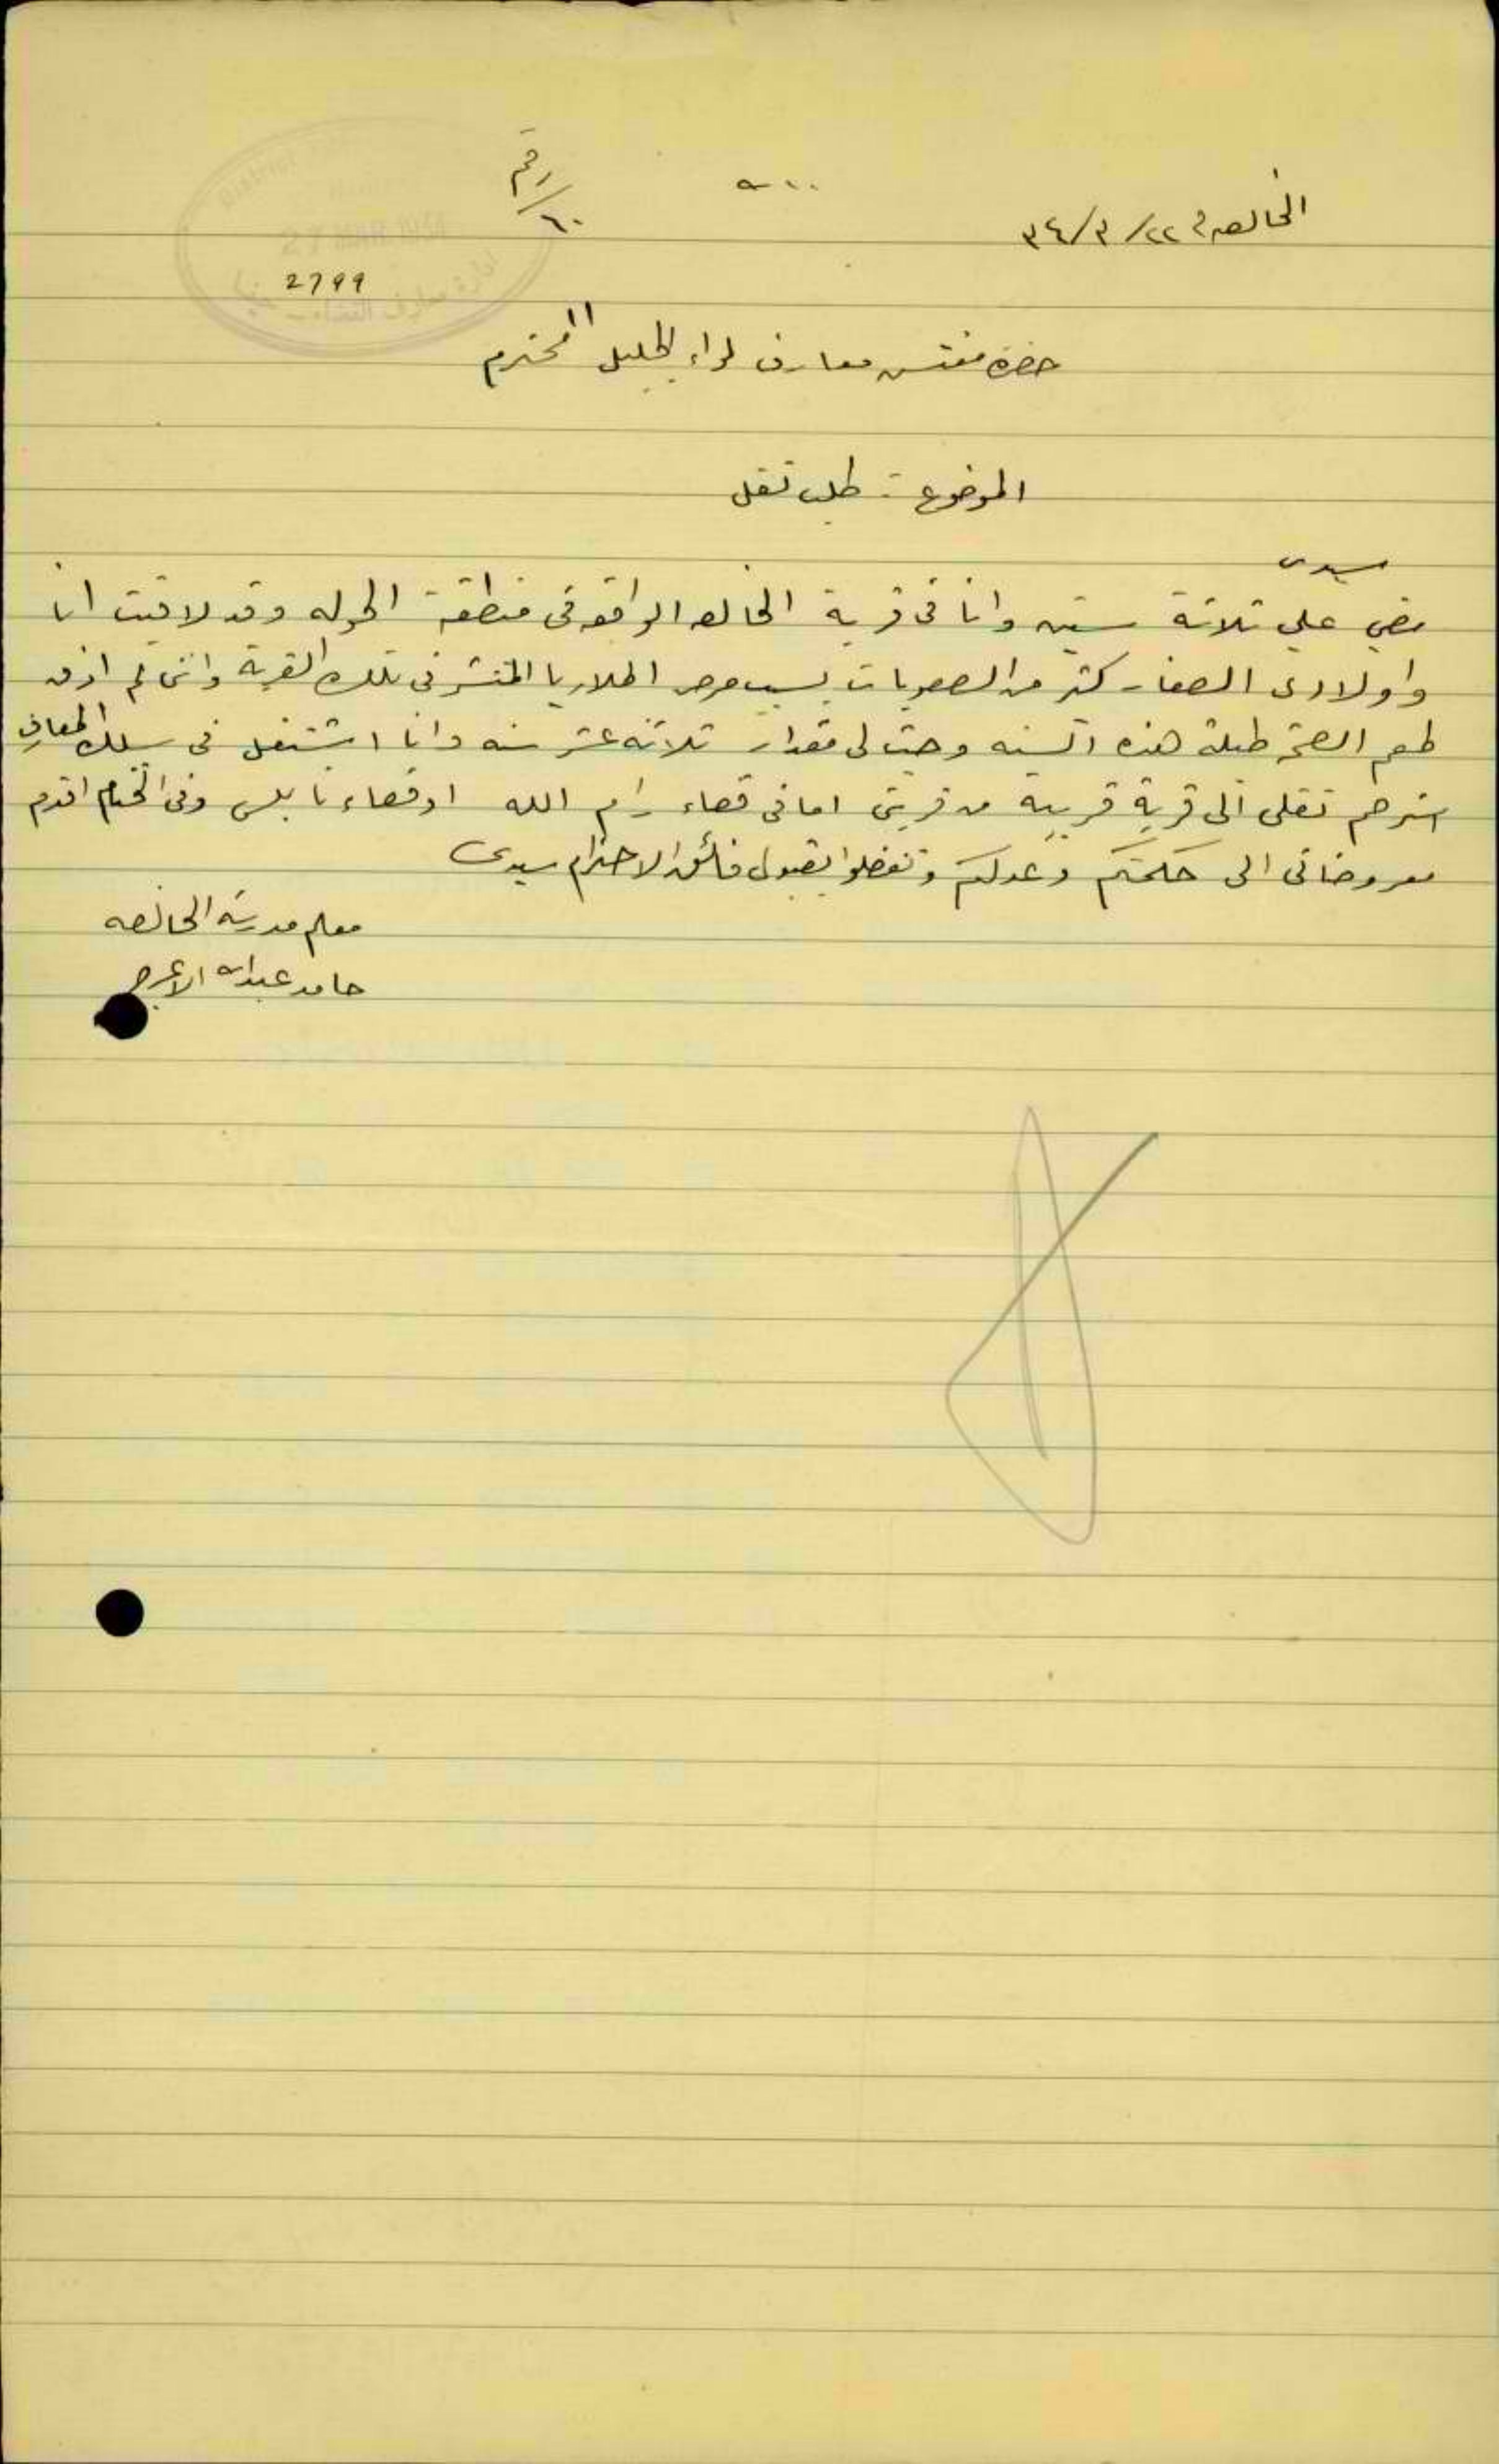 الخالصه في ٢٢/٣/٣٤
رقم
٦٠
27 MAR 1934
2799
حضرة مفتش معارف لواء الجليل المحترم
الموضوع :- طلب نقل
سيدى
مضى علي ثلاثة سنين وانا فى قرية الخالصه الواقعه فى منطقة الحوله وقد لاقيت انا
واولادى الصغار كثير من الصعوبات بسبب مرض الملاريا المنتشر فى تلك القرية واننى لم اذق
طعم الصحة طيلة هذه السنه وحيث لى مقدار ثلاثة عشر سنه وانا اشتغل فى سلك المعارف
استرحم نقلى الى قرية قريبة من قريتى اما فى قضاء رام الله او قضاء نابلس وفى الختام اقدم
معروضاتى الى حكمتكم وعدلكم وتفضلوا بقبول فائق الاحترام سيدى
معلم مدرسة الخالصه
حامد عبدالله الاعرج